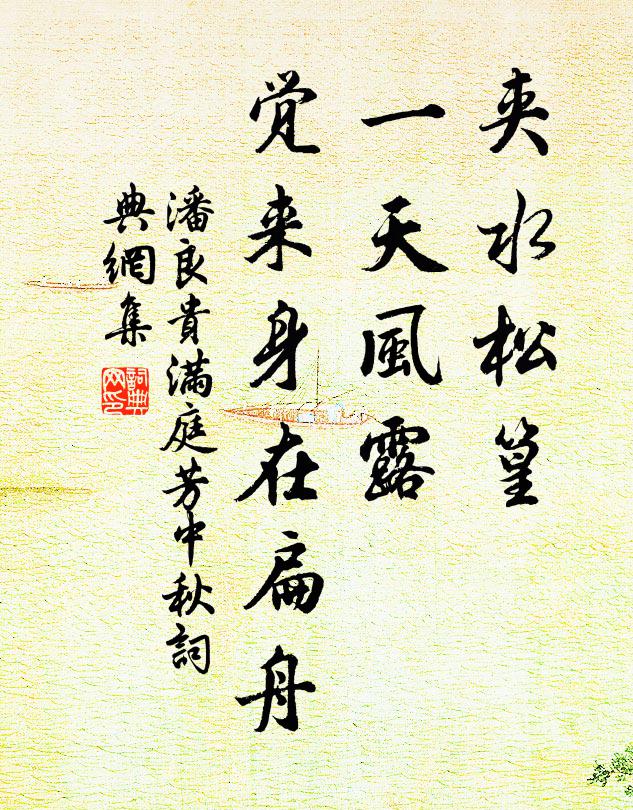 夹水松篁
一天風露
觉来身在扁舟
潘良貴满庭芳中秋詞
典網集
詞典网印